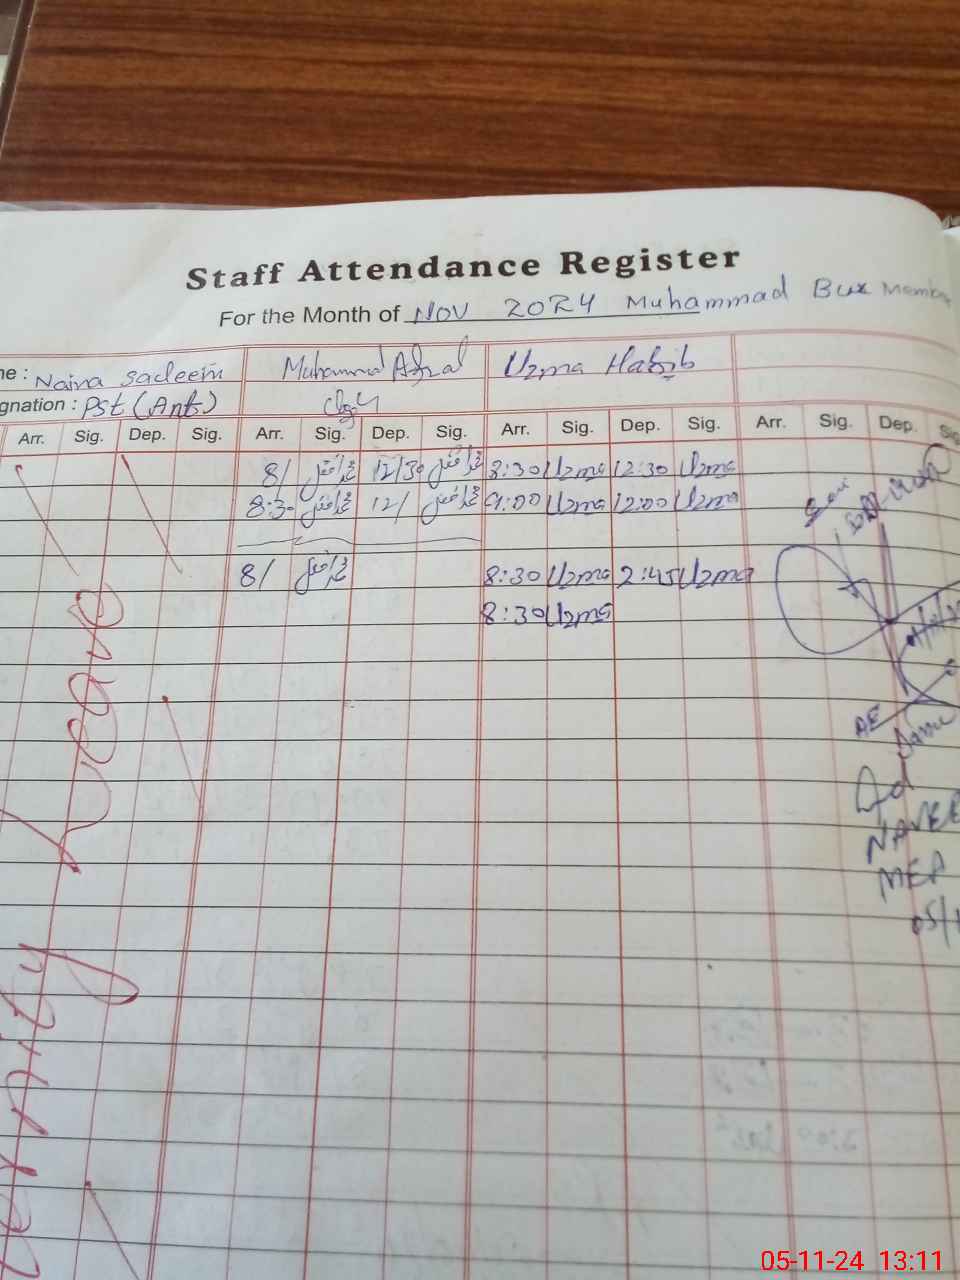 Staff Attendance Register
For the Month of Nov 2024 Muhammad Bux Member
me : Naina Sadeem Muhammad Afzal Uzma Habib
gnation : PST (Ant)
Arr. Sig. Dep. Sig. Arr. Sig. Dep. Sig. Arr. Sig. Dep. Sig. Arr. Sig. Dep. Sig
8/ محمد افضل 12/30 محمد افضل 8:30 Uzma 12:30 Uzma
8:30 محمد افضل 12/ محمد افضل 9:00 Uzma 12:00 Uzma
8/ محمد افضل 8:30 Uzma 2:45 Uzma
8:30 Uzma
Leave
NAVEE
MEA
05/1
05-11-24 13:11